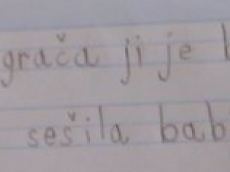 grača ji je
sešila bab